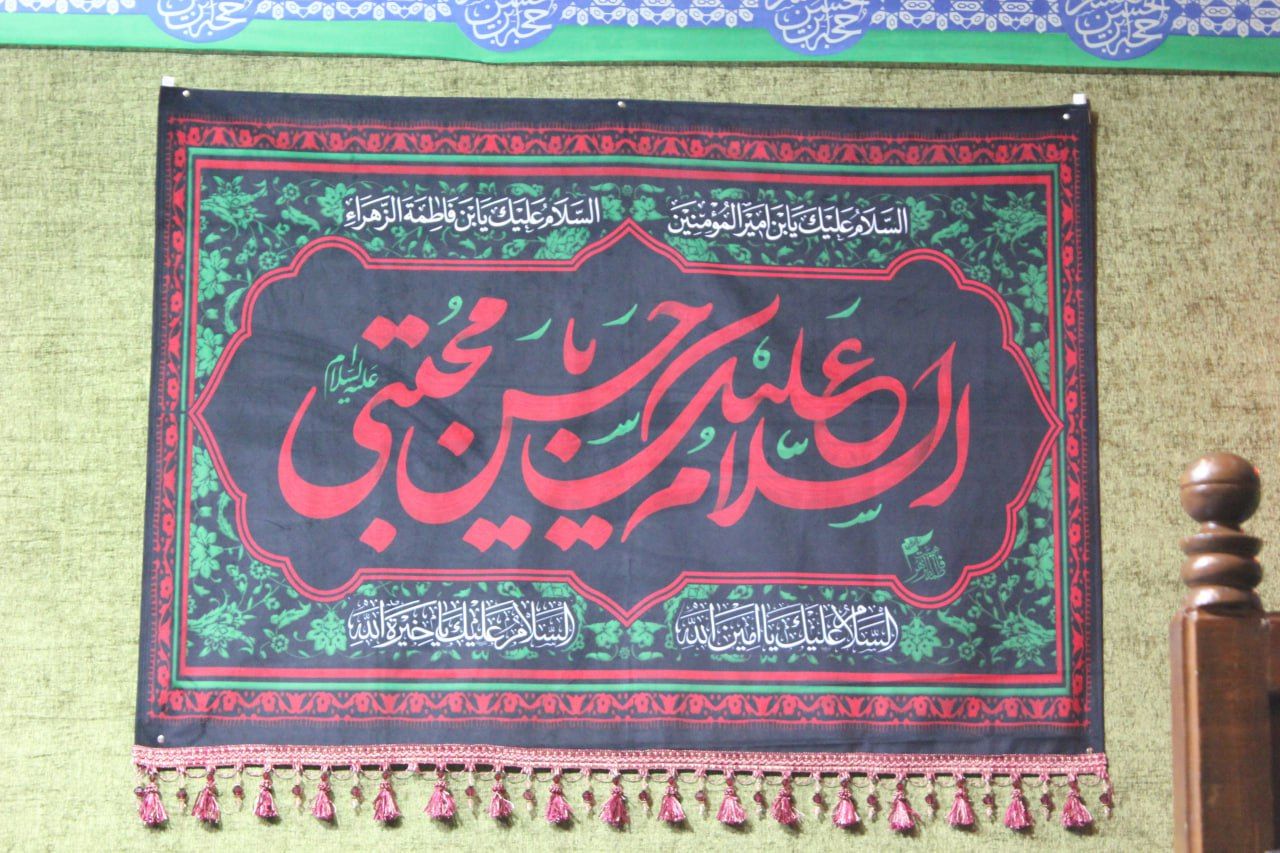 السَّلَامُ عَلَيْكَ يَابْنَ اَمِيرِ الْمُؤْمِنِينَ السَّلَامُ عَلَيْكَ يَابْنَ فَاطِمَةَ الزَّهْرَاءِ
السلام علیک یا حسن یا مجتبی علیه السلام
السَّلَامُ عَلَيْكَ يَا اَمِينَ اللهِ السَّلَامُ عَلَيْكَ يَا خِيَرَةَ اللهِ